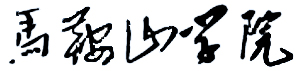 馬鞍山学院